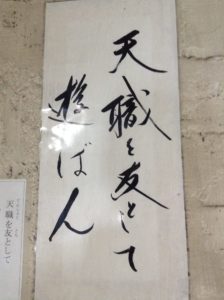 天職を友として
遊ばん
天職を友として